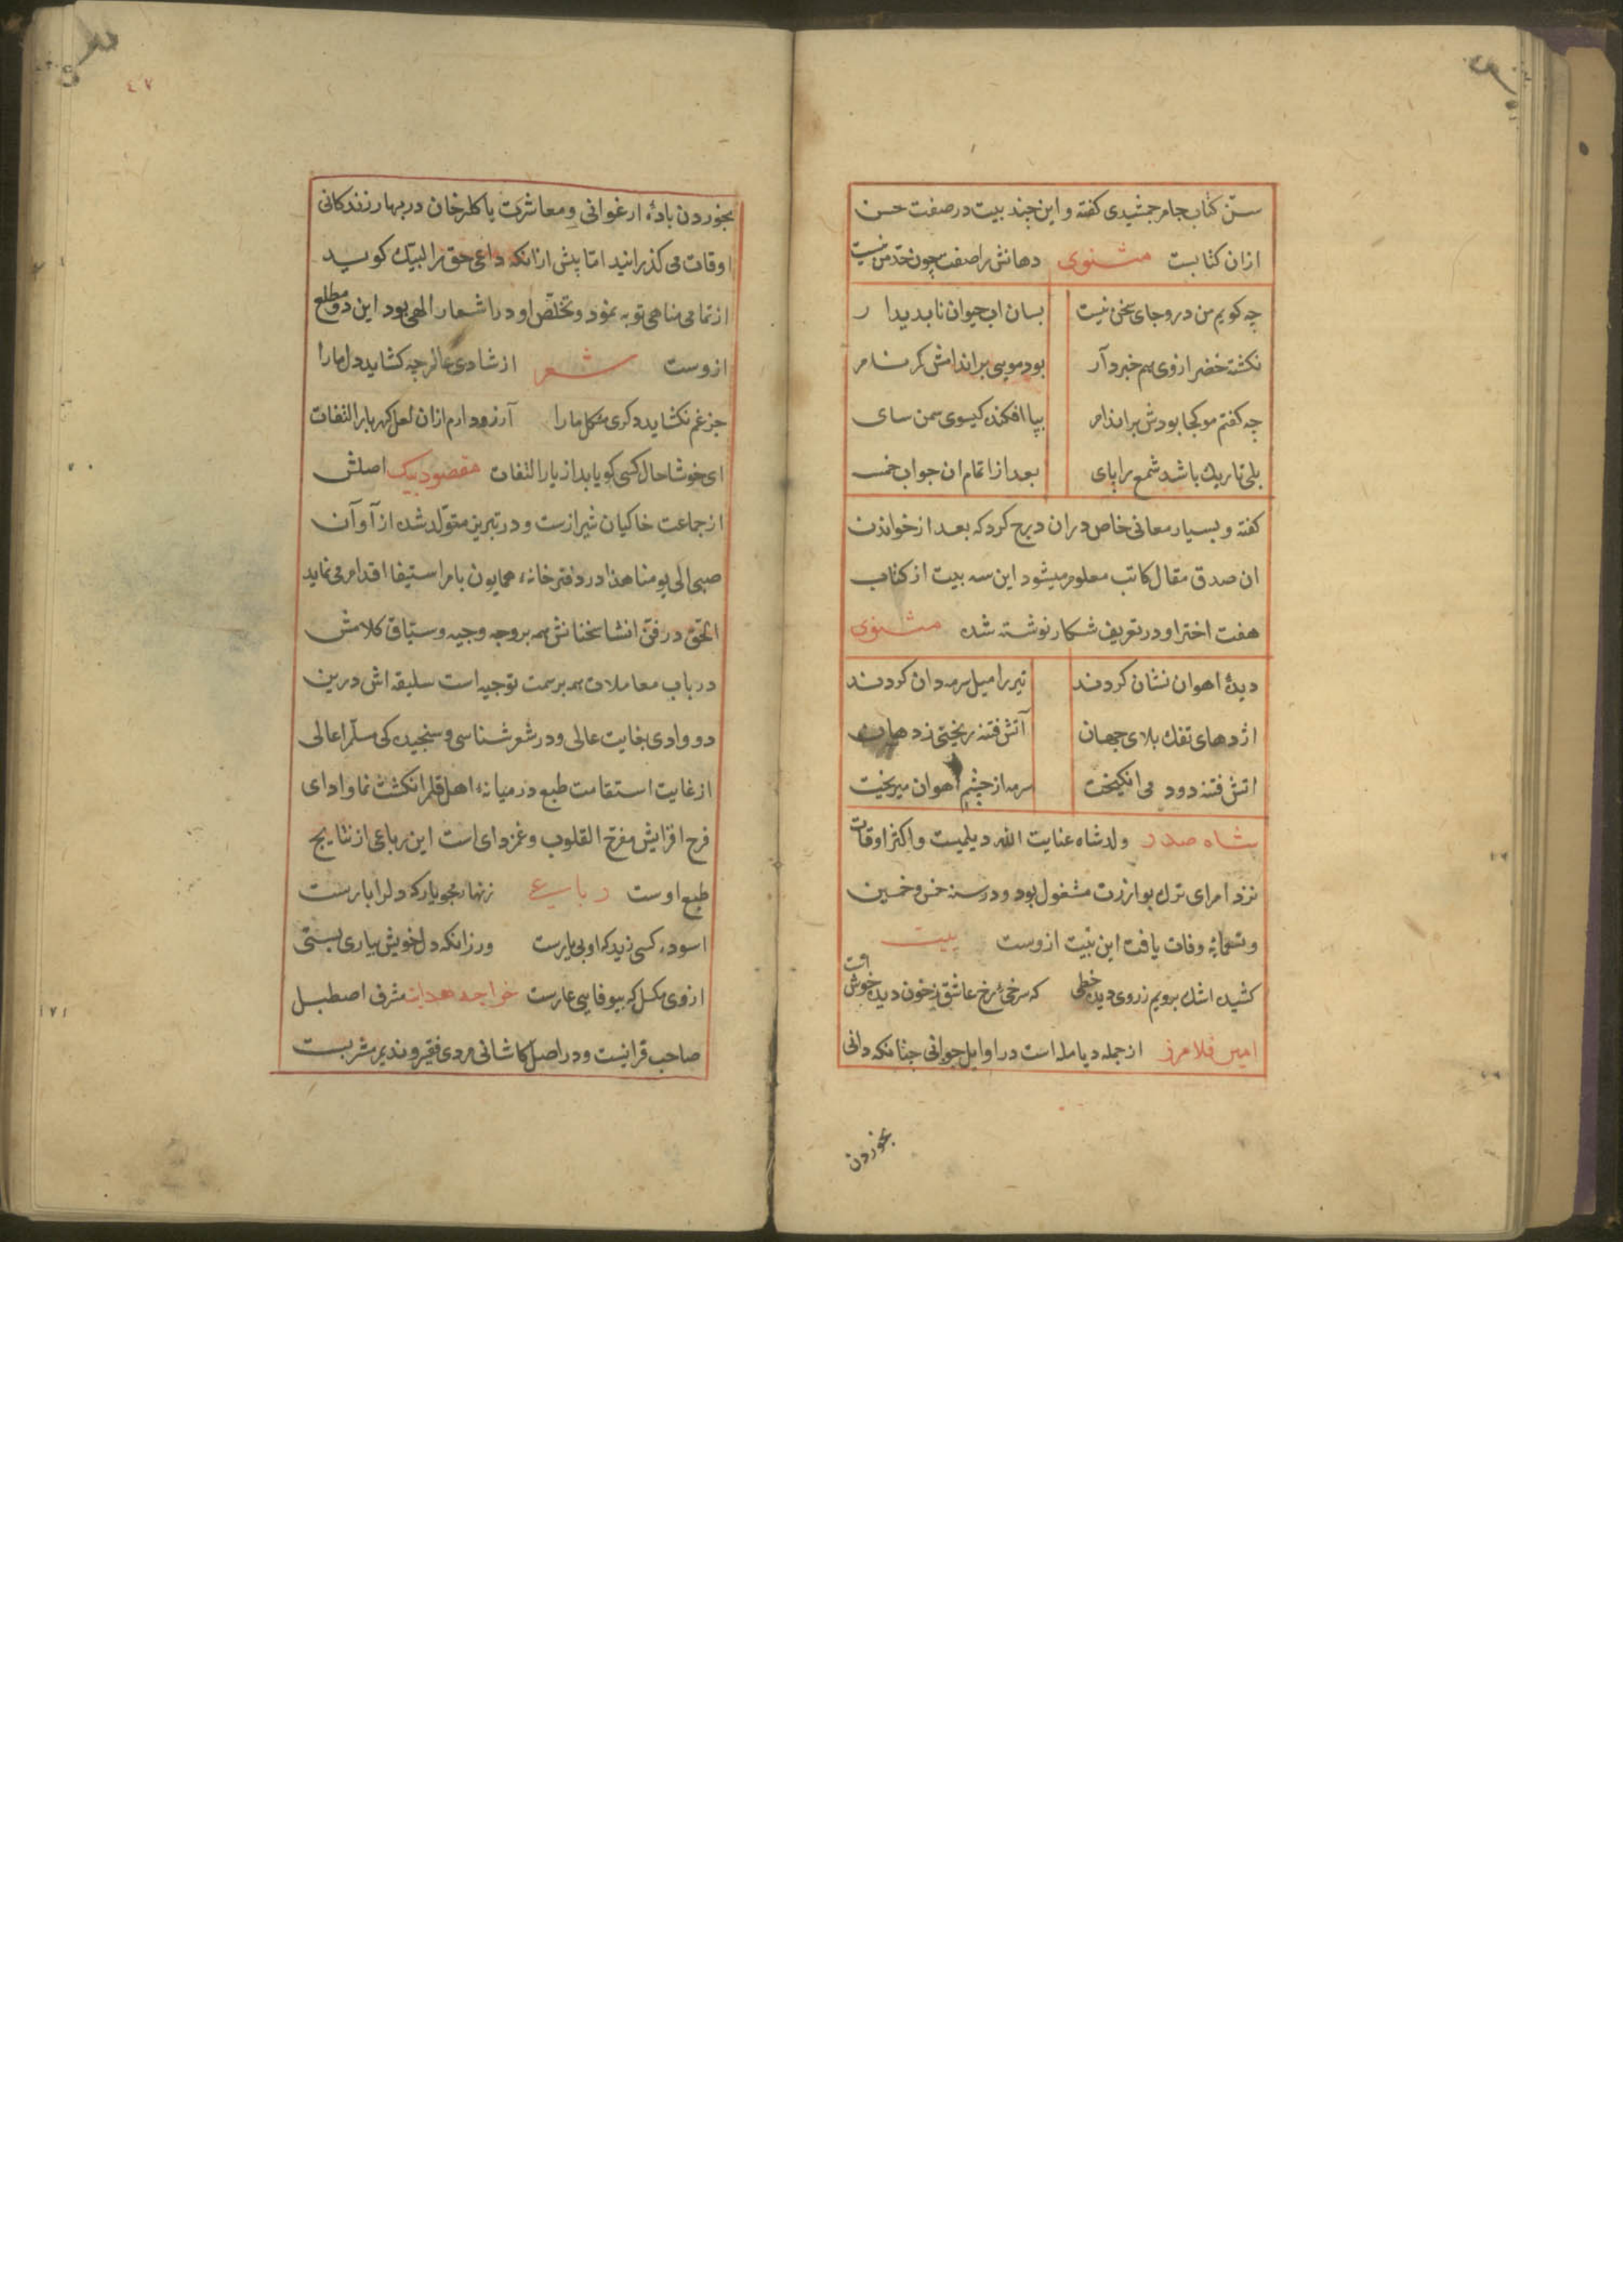 سنّ کتاب جام جمشیدی کفته و این چند بیت در صفت حسن
ازان کتابست مثنوی دهانش را صفت چون حدّ من نیست
چه کویم من درو جای سخن نیست بسان اب حیوان ناپدیدار
نکشته خضر ازوی هم خبردار بود مویی بر اندامش کر نام
چه کفتم مو کجا بودش بر اندام بپا افکنده کیسوی سمن سای
بلی تاریك باشد شمع را پای بعد از اتمام ان جواب خمسه
کفته و بسیار معانی خاص دران درج کرد که بعد از خواندن
ان صدق مقال کاتب معلوم میشود این سه بیت از کتاب
هفت اختر او در تعریف شکار نوشته شد مثنوی
دیدهٔ اهوان نشان کردند تیر را میل سرمه دان کردند
اژدهای تفك بلای جهان آتش فتنه ریختی ز دهان
اتش فتنه دود می انکیخت سرمه از چشم اهوان میریخت
شاه صدر ولد شاه عنایت الله دیلمیست و اکثر اوقات
نزد امرای ترك بوازرت مشغول بود و در سنه خمس و خمسین
و تسعمائه وفات یافت این بیت ازوست بیت
کشیده اشك برویم ز روی دیده خطی که سرخیٔ رخ عاشق ز خون دیده خوش است
امیر فلامرز از جمله دیامله است در اوایل جوانی چنانکه دانی
بخوردن
٤٧
بخوردن بادهٔ ارغوانی و معاشرت با کلرخان در بهار زندکانی
اوقات می کذرانید اما پیش ازانکه داعی حق را لبیك کوید
از تمامی مناهی توبه نمود و تخلّص او در اشعار الهی بود این دو مطلع
ازوست شعر از شادی عالم چه کشاید دل ما را
جز غم نکشاید دکری مشکل ما را آرزو دارم ازان لعل کهربار التفات
ای خوشا حال کسی کو یابد از یار التفات مقصود بیک اصلش
از جماعت خاکیان شیرازست و در تبریز متولّد شده از آوان
صبی الی یومنا هذا در دفترخانهٔ همایون بامر استیفا اقدام می نماید
الحق در فنّ انشا سخنانش همه بر وجه وجیه و سیاق کلامش
در باب معاملات همه بر سمت توجیه است سلیقه اش درین
دو وادی بغایت عالی و در شعر شناسی و سنجیدکی مسلّم اعالی
از غایت استقامت طبع در میانهٔ اهل قلم انکشت نما و ادای
فرح افزایش مفرّح القلوب و غمزدای است این رباعی از نتایج
طبع اوست رباعی زنهار مجو یار که دل را بارست
اسوده کسی زید که او بی یارست ور زانکه دل خویش بیاری بستی
ازوی مکسل که بیوفایی عارست خواجه هدایت مشرف اصطبل
صاحب قرانیست و در اصل کاشانی مردی فقیر و ندیم مشربست